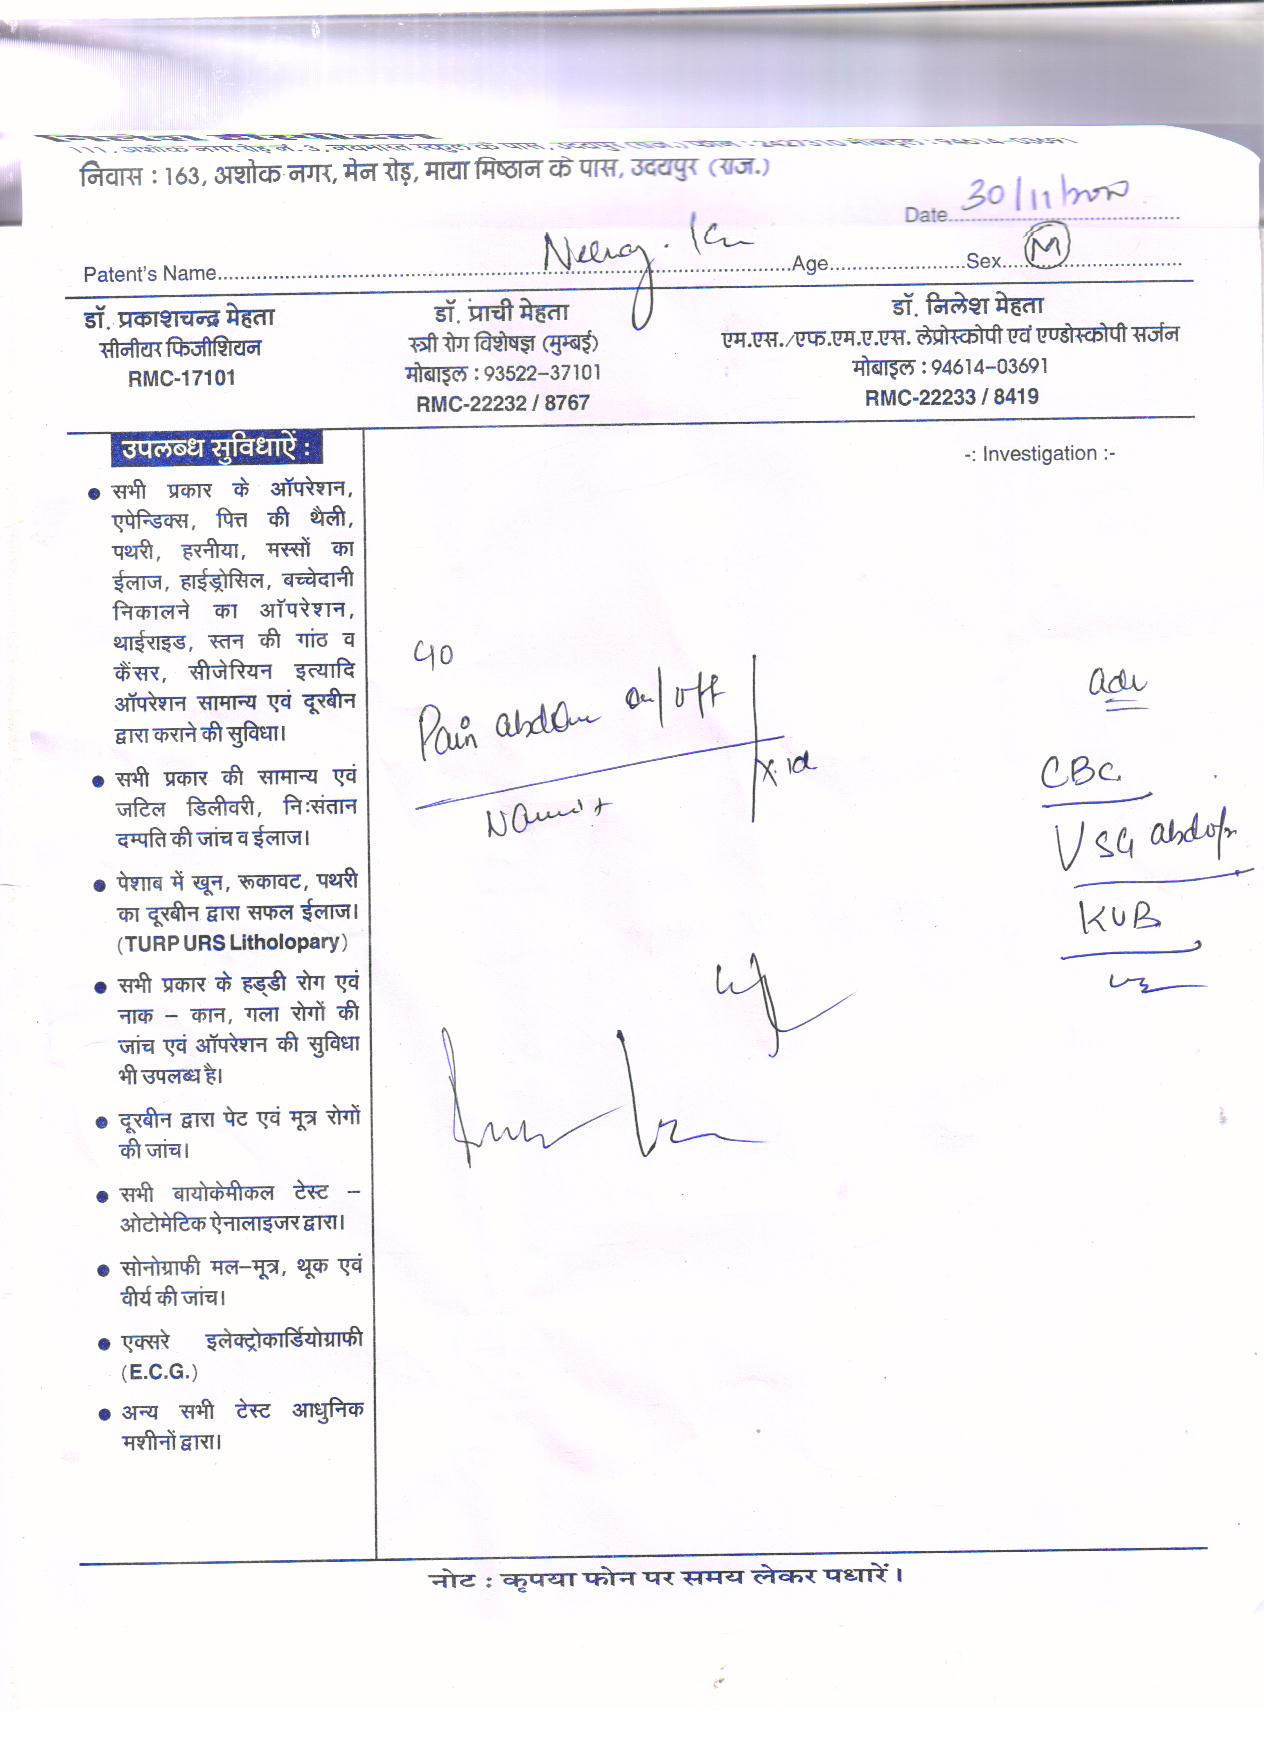 निवास : 163, अशोक नगर, मेन रोड़, माया मिष्ठान के पास, उदयपुर (राज.)
Date 30/11/
Patent's Name Neeraj. Age Sex M
डॉ. प्रकाशचन्द्र मेहता
सीनीयर फिजीशियन
RMC-17101
डॉ. प्राची मेहता
स्त्री रोग विशेषज्ञ (मुम्बई)
मोबाइल : 93522-37101
RMC-22232 / 8767
डॉ. निलेश मेहता
एम.एस./एफ.एम.ए.एस. लेप्रोस्कोपी एवं एण्डोस्कोपी सर्जन
मोबाईल : 94614-03691
RMC-22233 / 8419
उपलब्ध सुविधाऐं :
● सभी प्रकार के ऑपरेशन,
एपेन्डिक्स, पित्त की थैली,
पथरी, हरनीया, मस्सों का
ईलाज, हाईड्रोसिल, बच्चेदानी
निकालने का ऑपरेशन,
थाईराइड, स्तन की गांठ व
कैंसर, सीजेरियन इत्यादि
ऑपरेशन सामान्य एवं दूरबीन
द्वारा कराने की सुविधा।
● सभी प्रकार की सामान्य एवं
जटिल डिलीवरी, निःसंतान
दम्पति की जांच व ईलाज।
● पेशाब में खून, रूकावट, पथरी
का दूरबीन द्वारा सफल ईलाज।
(TURP URS Litholopary)
● सभी प्रकार के हड्डी रोग एवं
नाक – कान, गला रोगों की
जांच एवं ऑपरेशन की सुविधा
भी उपलब्ध है।
● दूरबीन द्वारा पेट एवं मूत्र रोगों
की जांच।
● सभी बायोकेमीकल टेस्ट –
ओटोमेटिक ऐनालाइजर द्वारा।
● सोनोग्राफी मल–मूत्र, थूक एवं
वीर्य की जांच।
● एक्सरे इलेक्ट्रोकार्डियोग्राफी
(E.C.G.)
● अन्य सभी टेस्ट आधुनिक
मशीनों द्वारा।
-: Investigation :-
C/O
Pain abdom on/off
x 1d
adv
CBC
USG abdo
KUB
नोट : कृपया फोन पर समय लेकर पधारें।